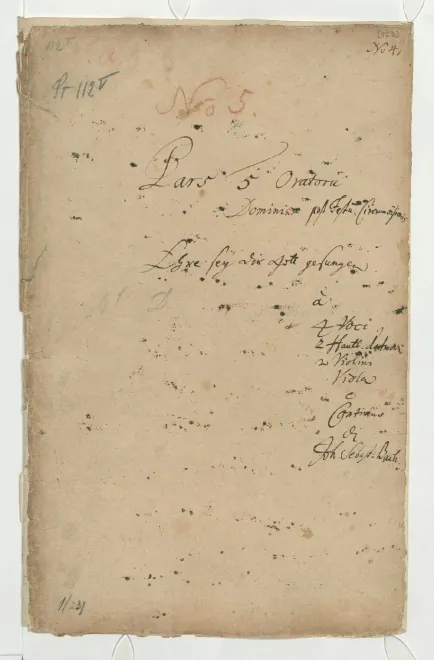 112 V
No 4.
Pr 112 V
No 5.
Pars 5 Oratorii
Dominica post Festu. Circumcisionis
Ehre sey dir Gott gesungen
à
4 Voci
2 Hautb. d'Amour
2 Violini
Viola
e
Continuo
di
Joh. Sebast. Bach.